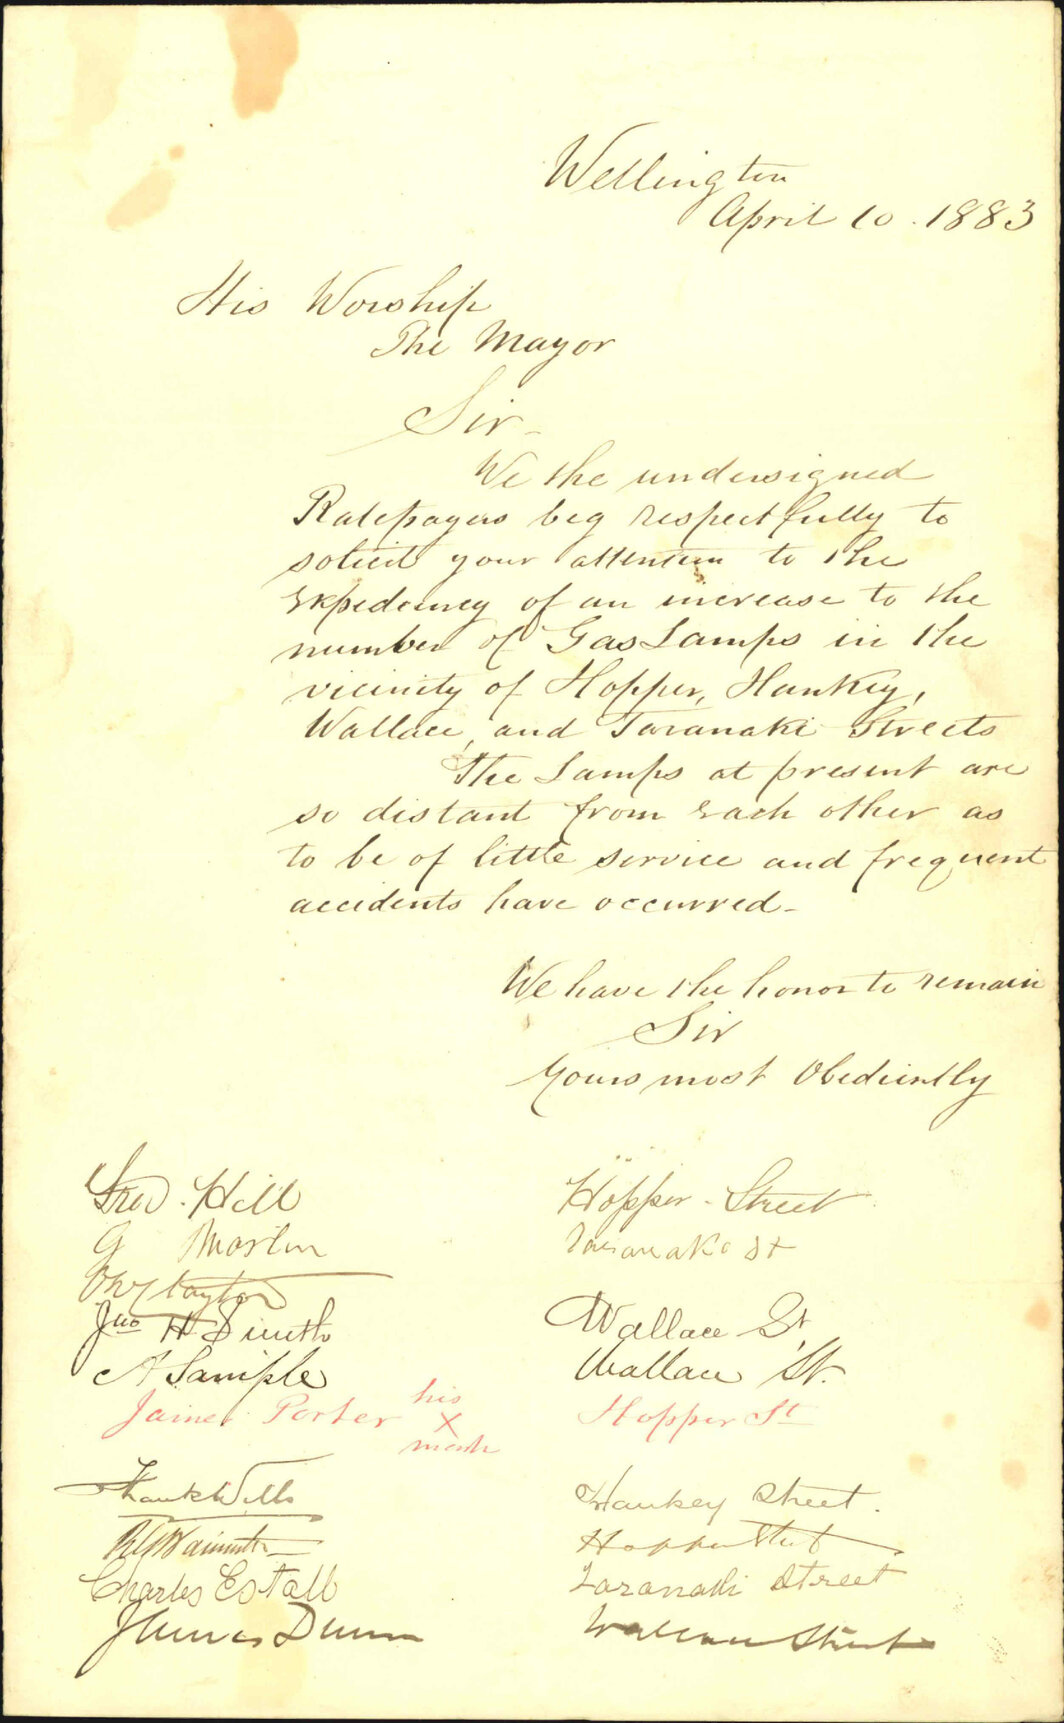 Wellington
April 10. 1883
His Worship
The Mayor
Sir -
We the undersigned
Ratepayers beg respectfully to
solicit your attention to the
expediency of an increase to the
number of Gas Lamps in the
vicinity of Hopper, Hankey,
Wallace, and Taranaki Streets
The Lamps at present are
so distant from each other as
to be of little service and frequent
accidents have occurred -
We have the honor to remain
Sir
Yours most Obediently
Fred. Hill Hopper - Street
G Martin Taranaki St
Jno H Wallace St
A Sample Wallace St.
James Porter his X mark Hopper St
Frank Wills Hankey Street.
Hopper Street
Charles Estall Taranaki Street
James Dunn Wallace Street